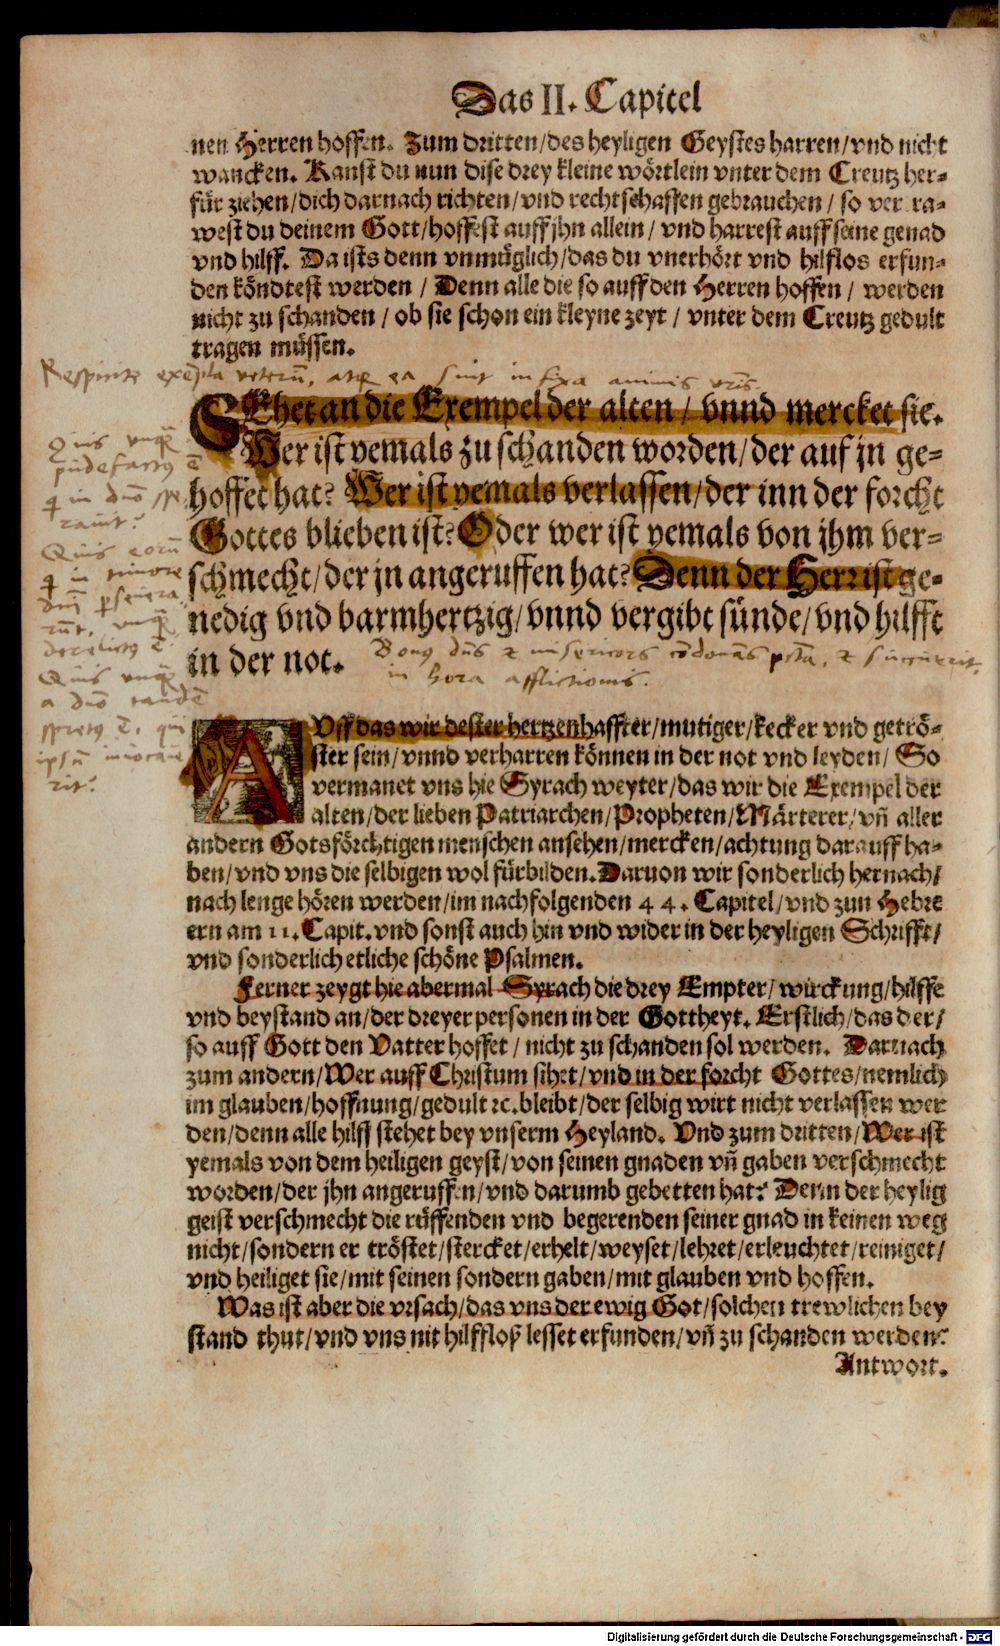 Das II. Capitel
nen Herren hoffen. Zum dritten/des heyligen Geystes harren/vnd nicht
wancken. Kanst du nun dise drey kleine wörtlein vnter dem Creutz her-
für ziehen/dich darnach richten/vnd rechtschaffen gebrauchen/ so ver ra-
west du deinem Gott/hoffest auff jhn allein/ vnd harrest auff seine genad
vnd hilff. Da ists denn vnmüglich/das du vnerhört vnd hilflos erfun-
den köndtest werden / Denn alle die so auff den Herren hoffen / werden
nicht zu schanden / ob sie schon ein kleyne zeyt / vnter dem Creutz gedult
tragen müssen.
Respicite exēpla veterū, atq̄ ea sint infixa animis vr̄is.
SEhet an die Exempel der alten/ vnnd mercket sie.
Wer ist yemals zu schanden worden/der auf jn ge-
hoffet hat? Wer ist yemals verlassen/der inn der forcht
Gottes blieben ist? Oder wer ist yemals von jhm ver-
schmecht/der jn angeruffen hat? Denn der Herr ist ge-
nedig vnd barmhertzig/vnnd vergibt sünde/vnd hilfft
in der not.
Bonus dn̄s & misericors cōdonās pctā, & succurrit
in hora afflictionis.
Quis vnq̄
pudefactus ē
q in dnō spe
ravit?
Quis eorū
q in timore
dn̄i ꝑsevera
rūt, vnq̄
derelictus ē
Quis vnq̄
a dnō tandē
spretus ē, qui
ipsū invocave
rit?
AVff das wir dester hertzenhaffter/mutiger/kecker vnd getrö-
ster sein/vnnd verharren können in der not vnd leyden/ So
vermanet vns hie Syrach weyter/das wir die Exempel der
alten/der lieben Patriarchen/Propheten/Märterer/vn̄ aller
andern Gotsförchtigen menschen ansehen/mercken/achtung darauff ha-
ben/vnd vns die selbigen wol fürbilden. Daruon wir sonderlich hernach/
nach lenge hören werden/im nachfolgenden 44. Capitel/vnd zun Hebre
ern am 11. Capit. vnd sonst auch hin vnd wider in der heyligen Schrifft/
vnd sonderlich etliche schöne Psalmen.
Ferner zeygt hie abermal Syrach die drey Empter/wirckung/hilffe
vnd beystand an/der dreyer personen in der Gottheyt. Erstlich/das der/
so auff Gott den Vatter hoffet / nicht zu schanden sol werden. Darnach
zum andern/Wer auff Christum sihet/vnd in der forcht Gottes/nemlich
im glauben/hoffnung/gedult ꝛc. bleibt/der selbig wirt nicht verlassen wer
den/denn alle hilff stehet bey vnserm Heyland. Vnd zum dritten/Wer ist
yemals von dem heiligen geyst/von seinen gnaden vn̄ gaben verschmecht
worden/der jhn angeruffen/vnd darumb gebetten hat? Denn der heylig
geist verschmecht die rüffenden vnd begerenden seiner gnad in keinen weg
nicht/sondern er tröstet/stercket/erhelt/weyset/lehret/erleuchtet/reiniget/
vnd heiliget sie/mit seinen sondern gaben/mit glauben vnd hoffen.
Was ist aber die vrsach/das vns der ewig Got/solchen trewlichen bey
stand thut/vnd vns nit hilffloß lesset erfunden/vn̄ zu schanden werden?
Antwort.
Digitalisierung gefördert durch die Deutsche Forschungsgemeinschaft - DFG